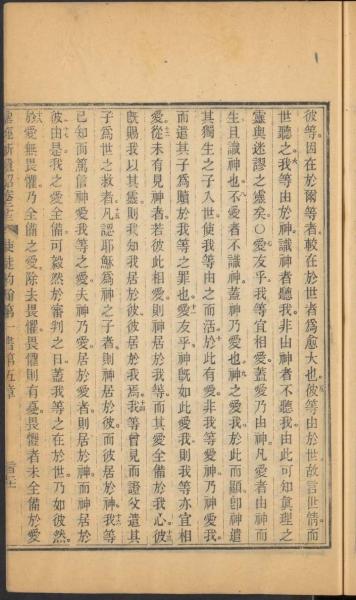 彼等因在於爾等者較在於世者爲愈大也彼等由於世故言世情而
世聽之我等由於神識神者聽我非由神者不聽我由此可知眞理之
靈與迷謬之靈矣〇愛友乎我等宜相愛蓋愛乃由神凡愛者由神而
生且識神也不愛者不識神蓋神乃愛也神之愛我於此而顯卽神遣
其獨生之子入世使我等由之而活於此有愛非我等愛神乃神愛我
而遣其子爲贖於我等之罪也愛友乎神旣如此愛我則我等亦宜相
愛從未有見神者若彼此相愛則神居於我等而其愛全備於我心彼
旣賜我以其靈則我知我居於彼彼居於我焉我等曾見而證父遣其
子爲世之救者凡認耶穌爲神之子者則神居於彼而彼居於神我等
已知而篤信神愛我等之愛夫神乃愛居於愛者則居於神而神居於
彼由是我之愛全備可毅然於審判之日蓋我等之在於世乃如彼然
於愛無畏懼乃全備之愛除去畏懼畏懼則有憂畏懼者未全備於愛
使徒約翰第一書第五章